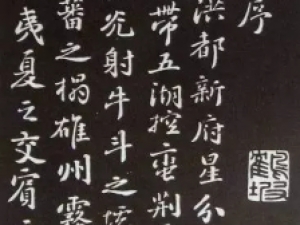 序
洪都新府星分
帶五湖控蛮荆
光射牛斗之墟
蕃之榻雄州霧
夷夏之交賓